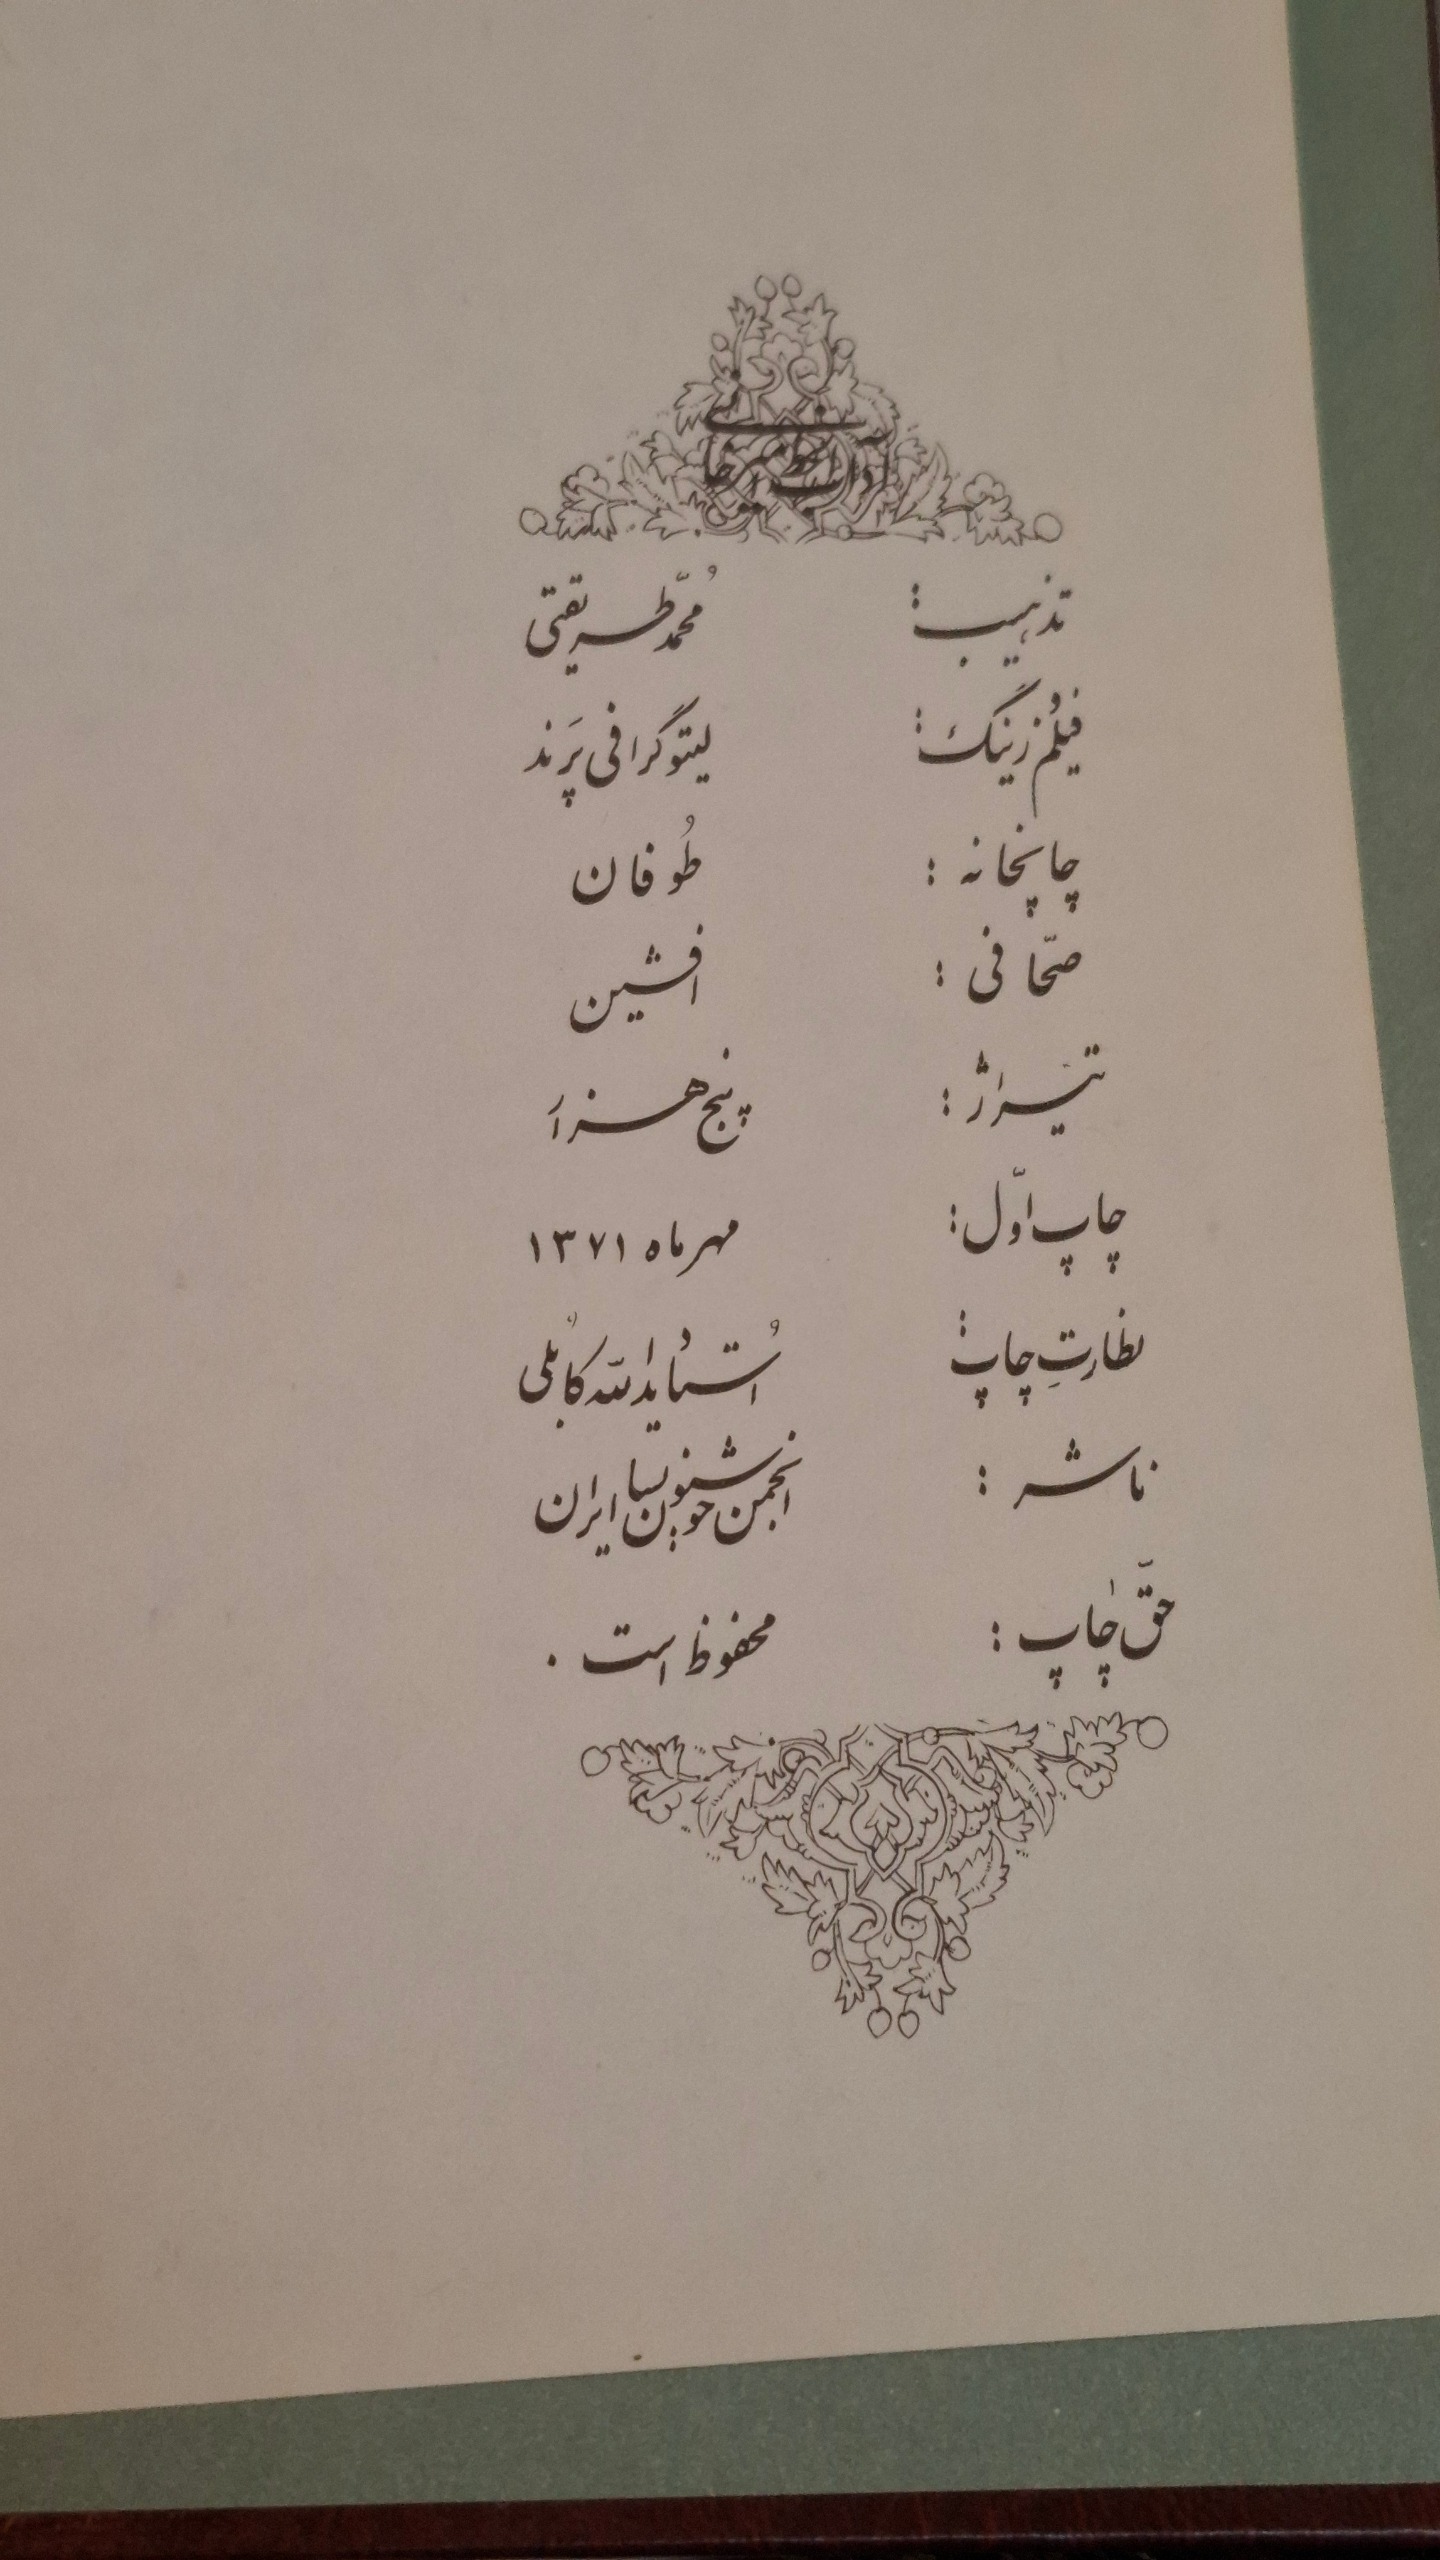 تذهیب: محمّد طریقتی
فیلم زینگ: لیتوگرافی پَرند
چاپخانه: طُوفان
صحّافی: افشین
تیراژ: پنج هزار
چاپ اوّل: مهر ماه ۱۳۷۱
نظارتِ چاپ: اُستاد یدالله کابُلی
ناشر: انجمن خوشنویسان ایران
حقّ چاپ: محفوظ است.